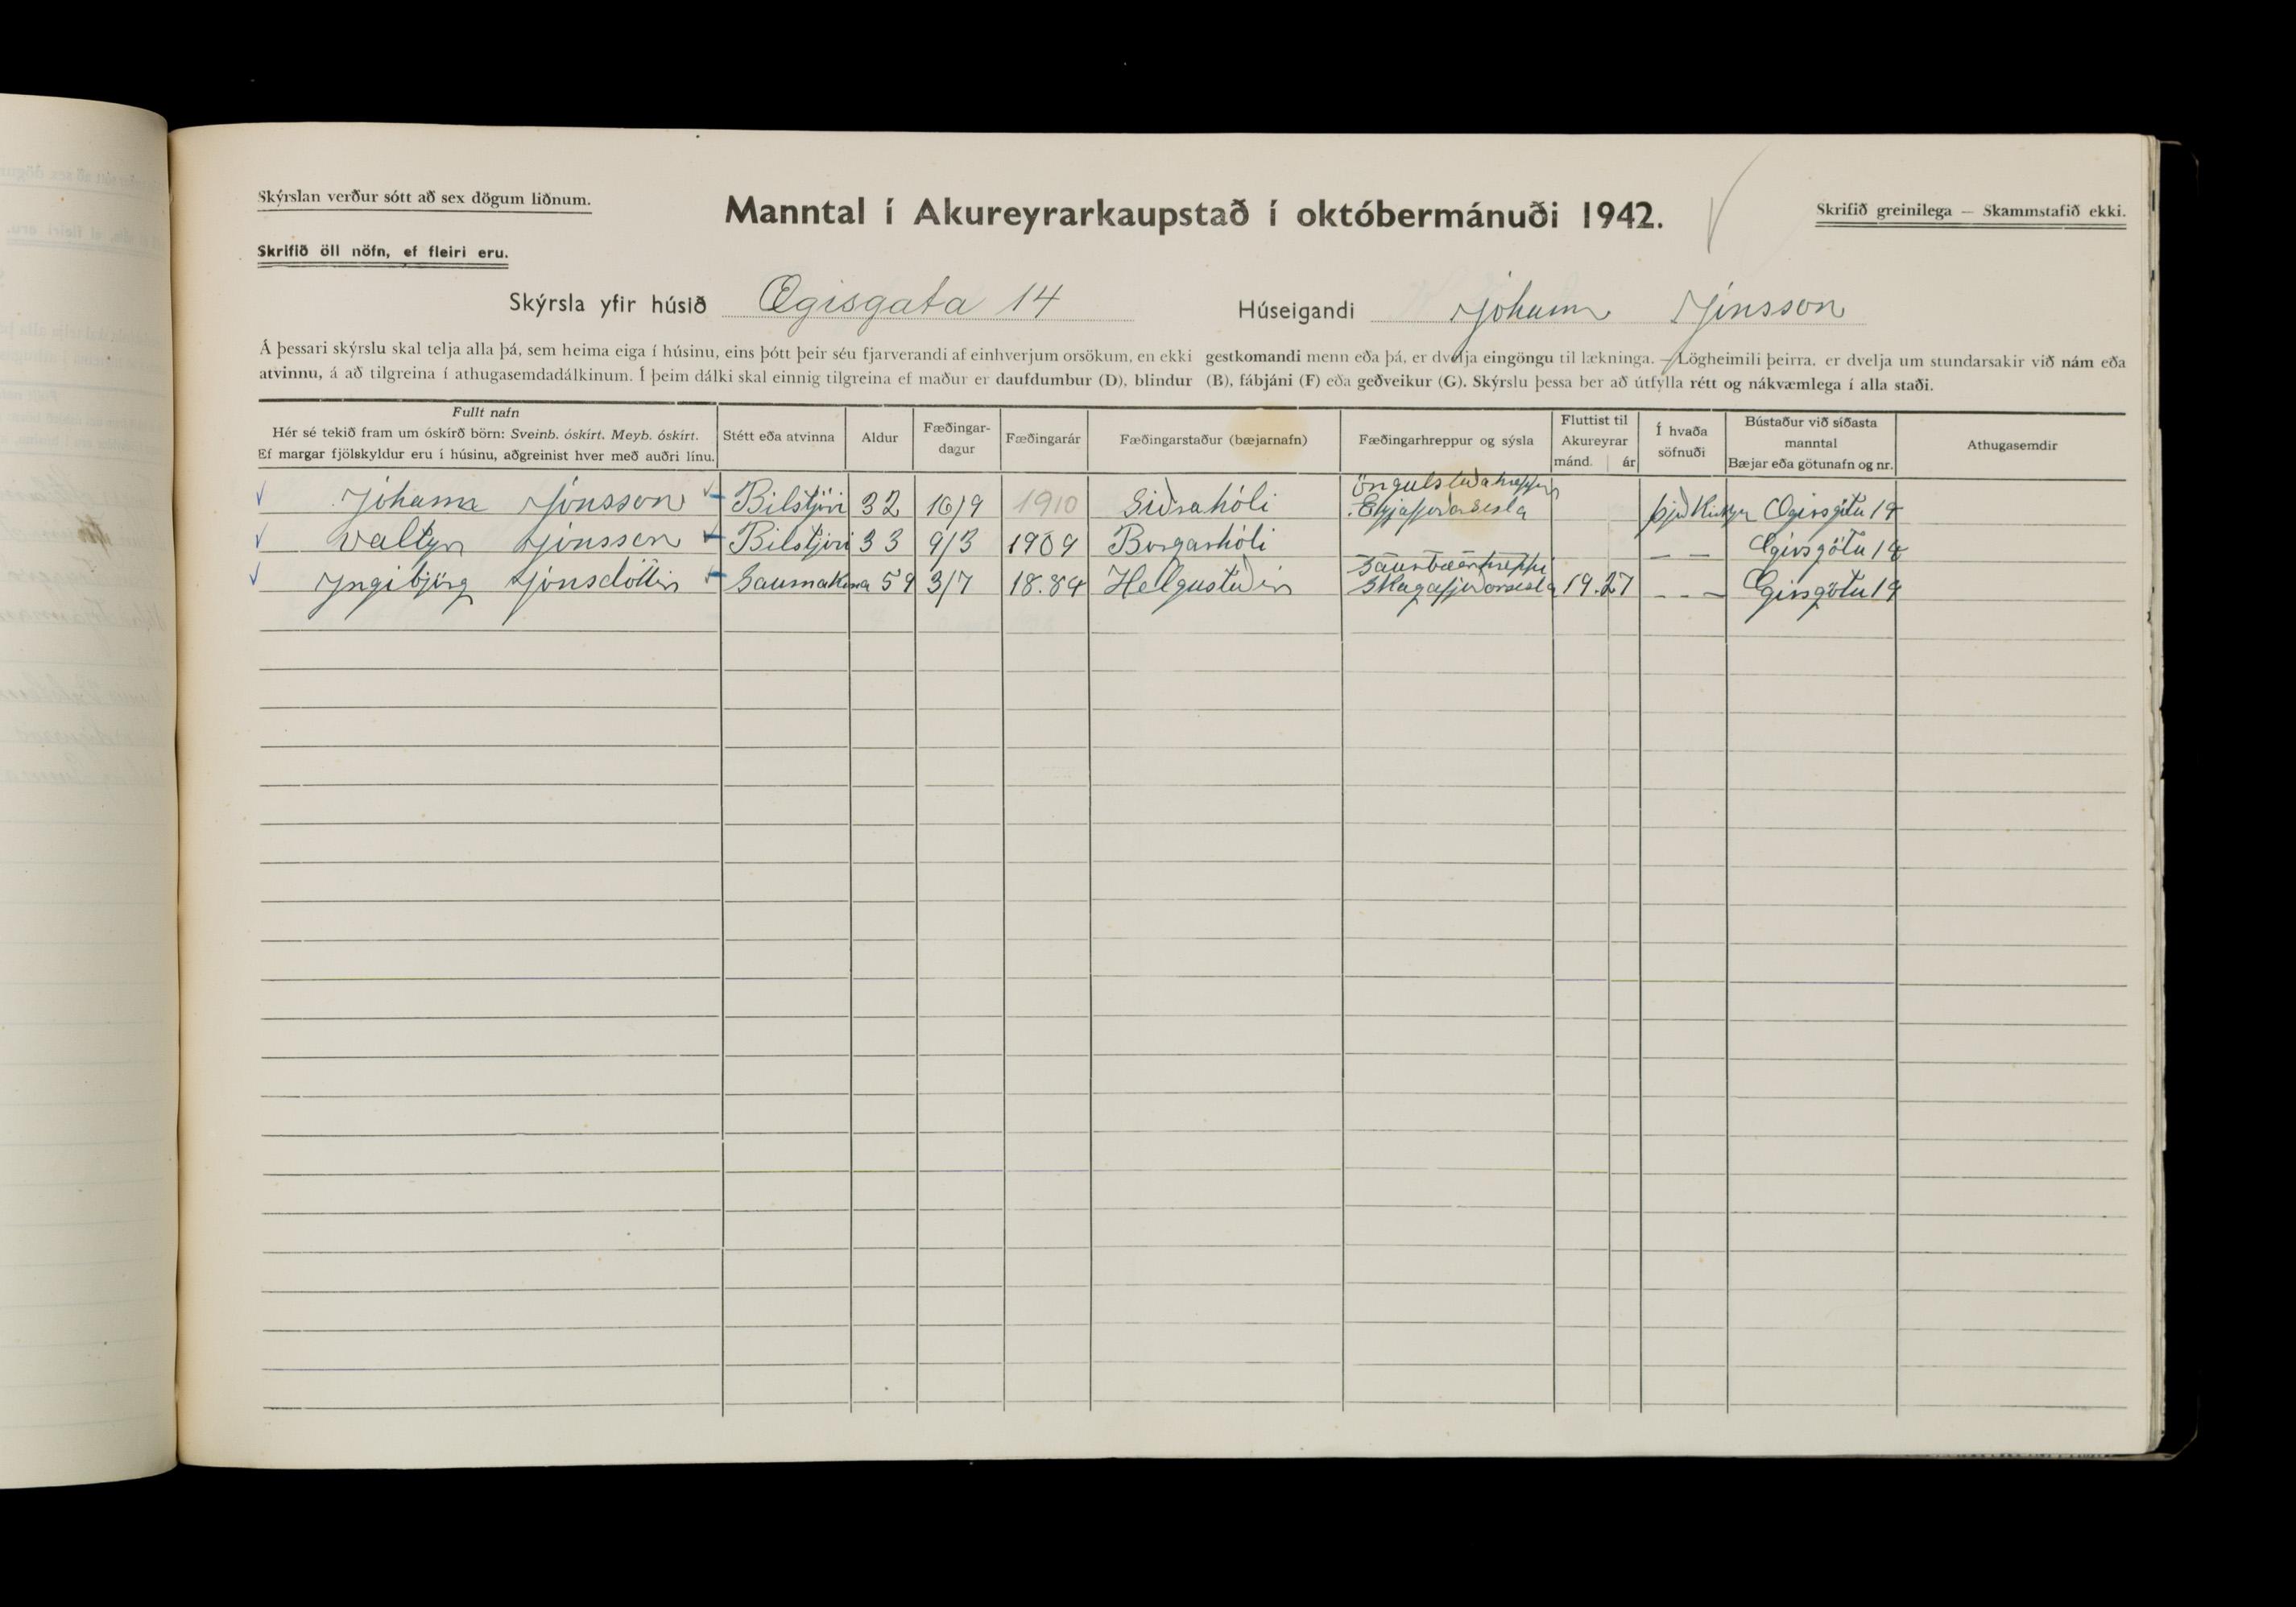 Skýrslan verður sótt að sex dögum liðnum.
Manntal í Akureyrarkaupstað í októbermánuði 1942.
Skrifið greinilega — Skammstafið ekki.
Skrifið öll nöfn, ef fleiri eru.
Skýrsla yfir húsið Ægisgata 14 Húseigandi Jóhann Jónsson
Á þessari skýrslu skal telja alla þá, sem heima eiga í húsinu, eins þótt þeir séu fjarverandi af einhverjum orsökum, en ekki gestkomandi menn eða þá, er dvelja eingöngu til lækninga. — Lögheimili þeirra, er dvelja um stundarsakir við nám eða
atvinnu, á að tilgreina í athugasemdadálkinum. Í þeim dálki skal einnig tilgreina ef maður er daufdumbur (D), blindur (B), fábjáni (F) eða geðveikur (G). Skýrslu þessa ber að útfylla rétt og nákvæmlega í alla staði.
Fullt nafn
Hér sé tekið fram um óskírð börn: Sveinb. óskírt. Meyb. óskírt.
Ef margar fjölskyldur eru í húsinu, aðgreinist hver með auðri línu.
Stétt eða atvinna
Aldur
Fæðingar-
dagur
Fæðingarár
Fæðingarstaður (bæjarnafn)
Fæðingarhreppur og sýsla
Fluttist til
Akureyrar
mánd. ár
Í hvaða
söfnuði
Bústaður við síðasta
manntal
Bæjar eða götunafn og nr.
Athugasemdir
Jóhann Jónsson Bilstjóri 32 16/9 1910 Siðrahóli Öngulstuðahreppur
Eyjafjarðarsesla Ægisgötu 14
Valtyr Jónsson Bilstjóri 33 9/3 1909 Borgarhóli — — Ægisgötu 14
Saurbæarhreppi
Yngibjörg Jónsdóttir Saumakona 59 3/7 18.84 Helgustuðir Skagafjarðarsesla 19.27 — — Ægisgötu 14